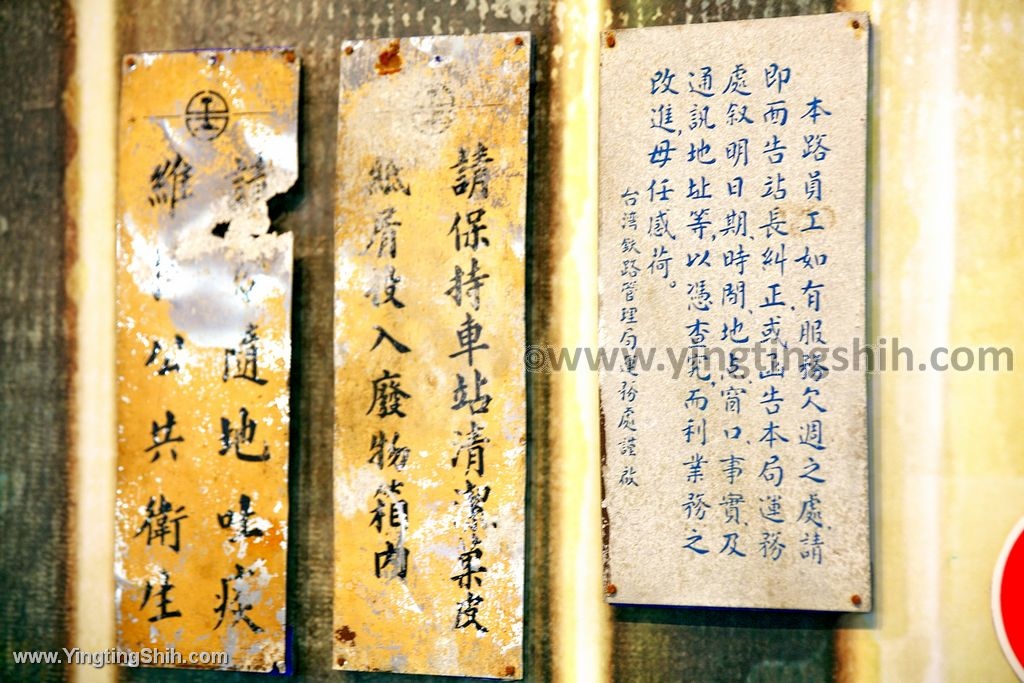 本路員工如有服務欠週之處,請
即面告站長糾正,或函告本局運務
處敘明日期、時間、地点、窗口、事實、及
通訊地址等,以憑查究,而利業務之
改進,毋任感荷。
台湾鉄路管理局運務處謹啟
請保持車站清潔菓皮
紙屑投入廢物箱內
請 隨地吐痰
維 公共衛生
©www.yingtingshih.com
www.YingtingShih.com